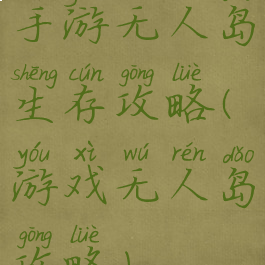 手游无人岛
shēng cún gōng lüè
生存攻略(
yóu xì wú rén dǎo
游戏无人岛
gōng lüè
攻略)